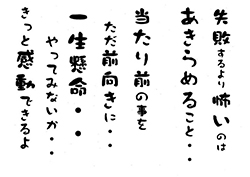 失敗するより怖いのは
あきらめること・・
当たり前の事を
ただ前向きに・・
一生懸命・・
やってみないか・・
きっと感動できるよ